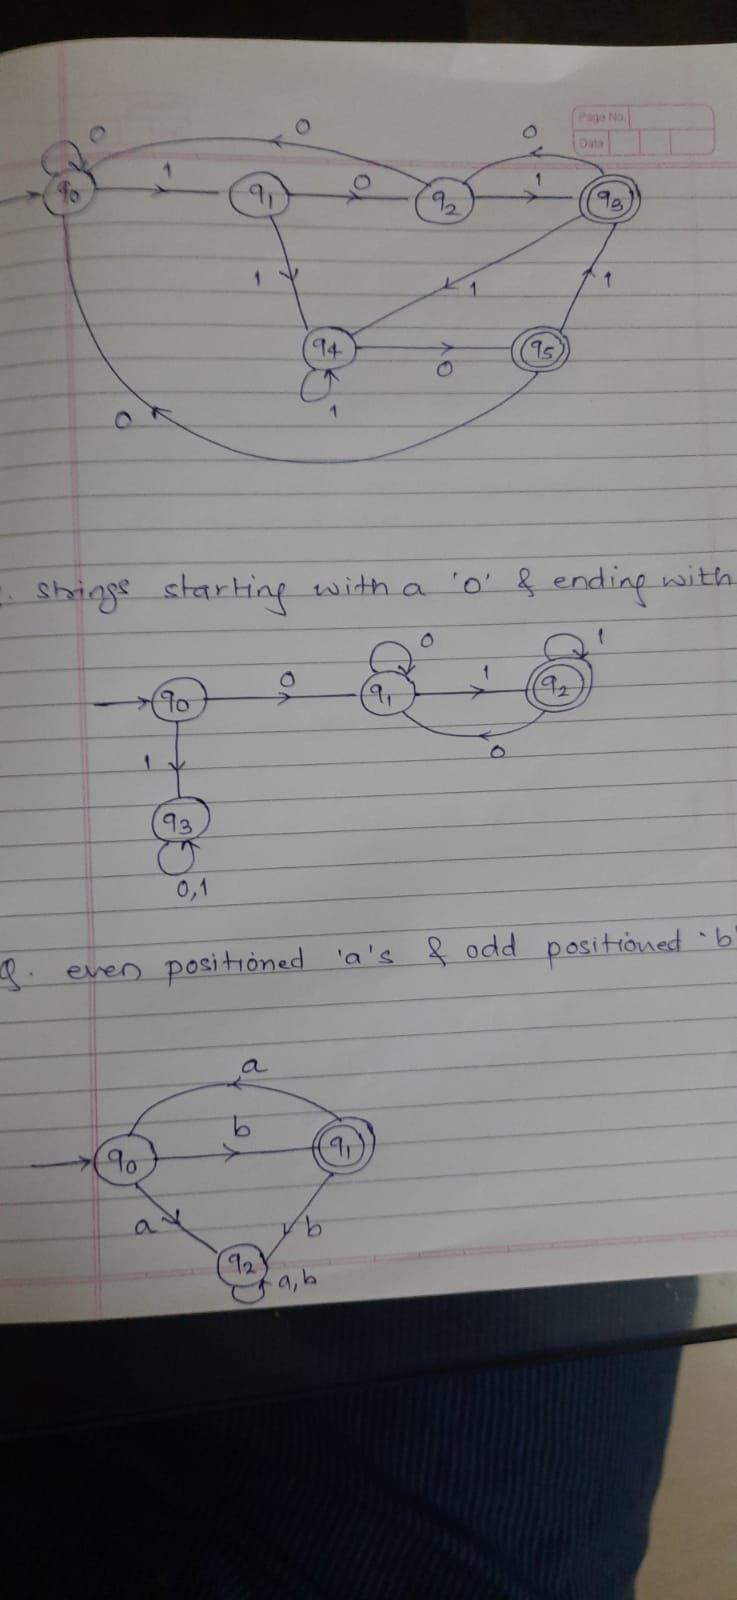 Page No.
Date
0 0 0
q0 1 q1 0 q2 1 q3
1 1 1
q4 0 q5
1
0
strings starting with a '0' & ending with
0 1
q0 0 q1 1 q2
0
1
q3
0,1
Q. even positioned 'a's & odd positioned 'b'
a
q0 b q1
a b
q2 a,b